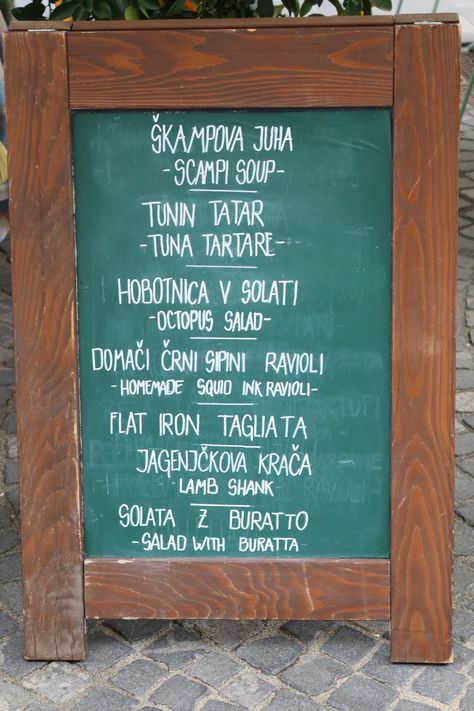 ŠKAMPOVA JUHA
- SCAMPI SOUP -
TUNIN TATAR
- TUNA TARTARE -
HOBOTNICA V SOLATI
- OCTOPUS SALAD -
DOMAČI ČRNI SIPINI RAVIOLI
- HOMEMADE SQUID INK RAVIOLI -
FLAT IRON TAGLIATA
JAGENJČKOVA KRAČA
LAMB SHANK
SOLATA Z BURATTO
- SALAD WITH BURATTA